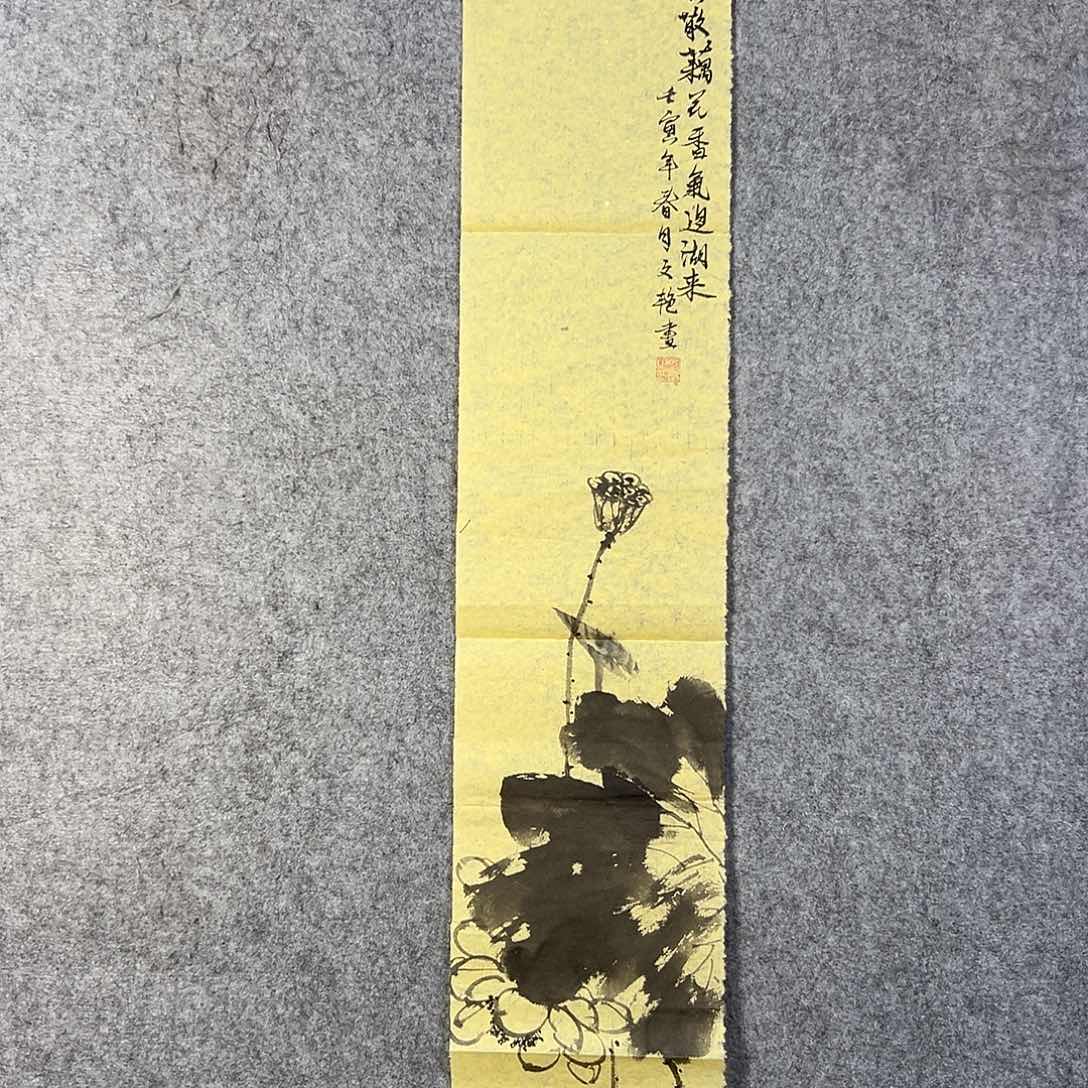 散藕花香氣過湖来
壬寅年春月文艳畫